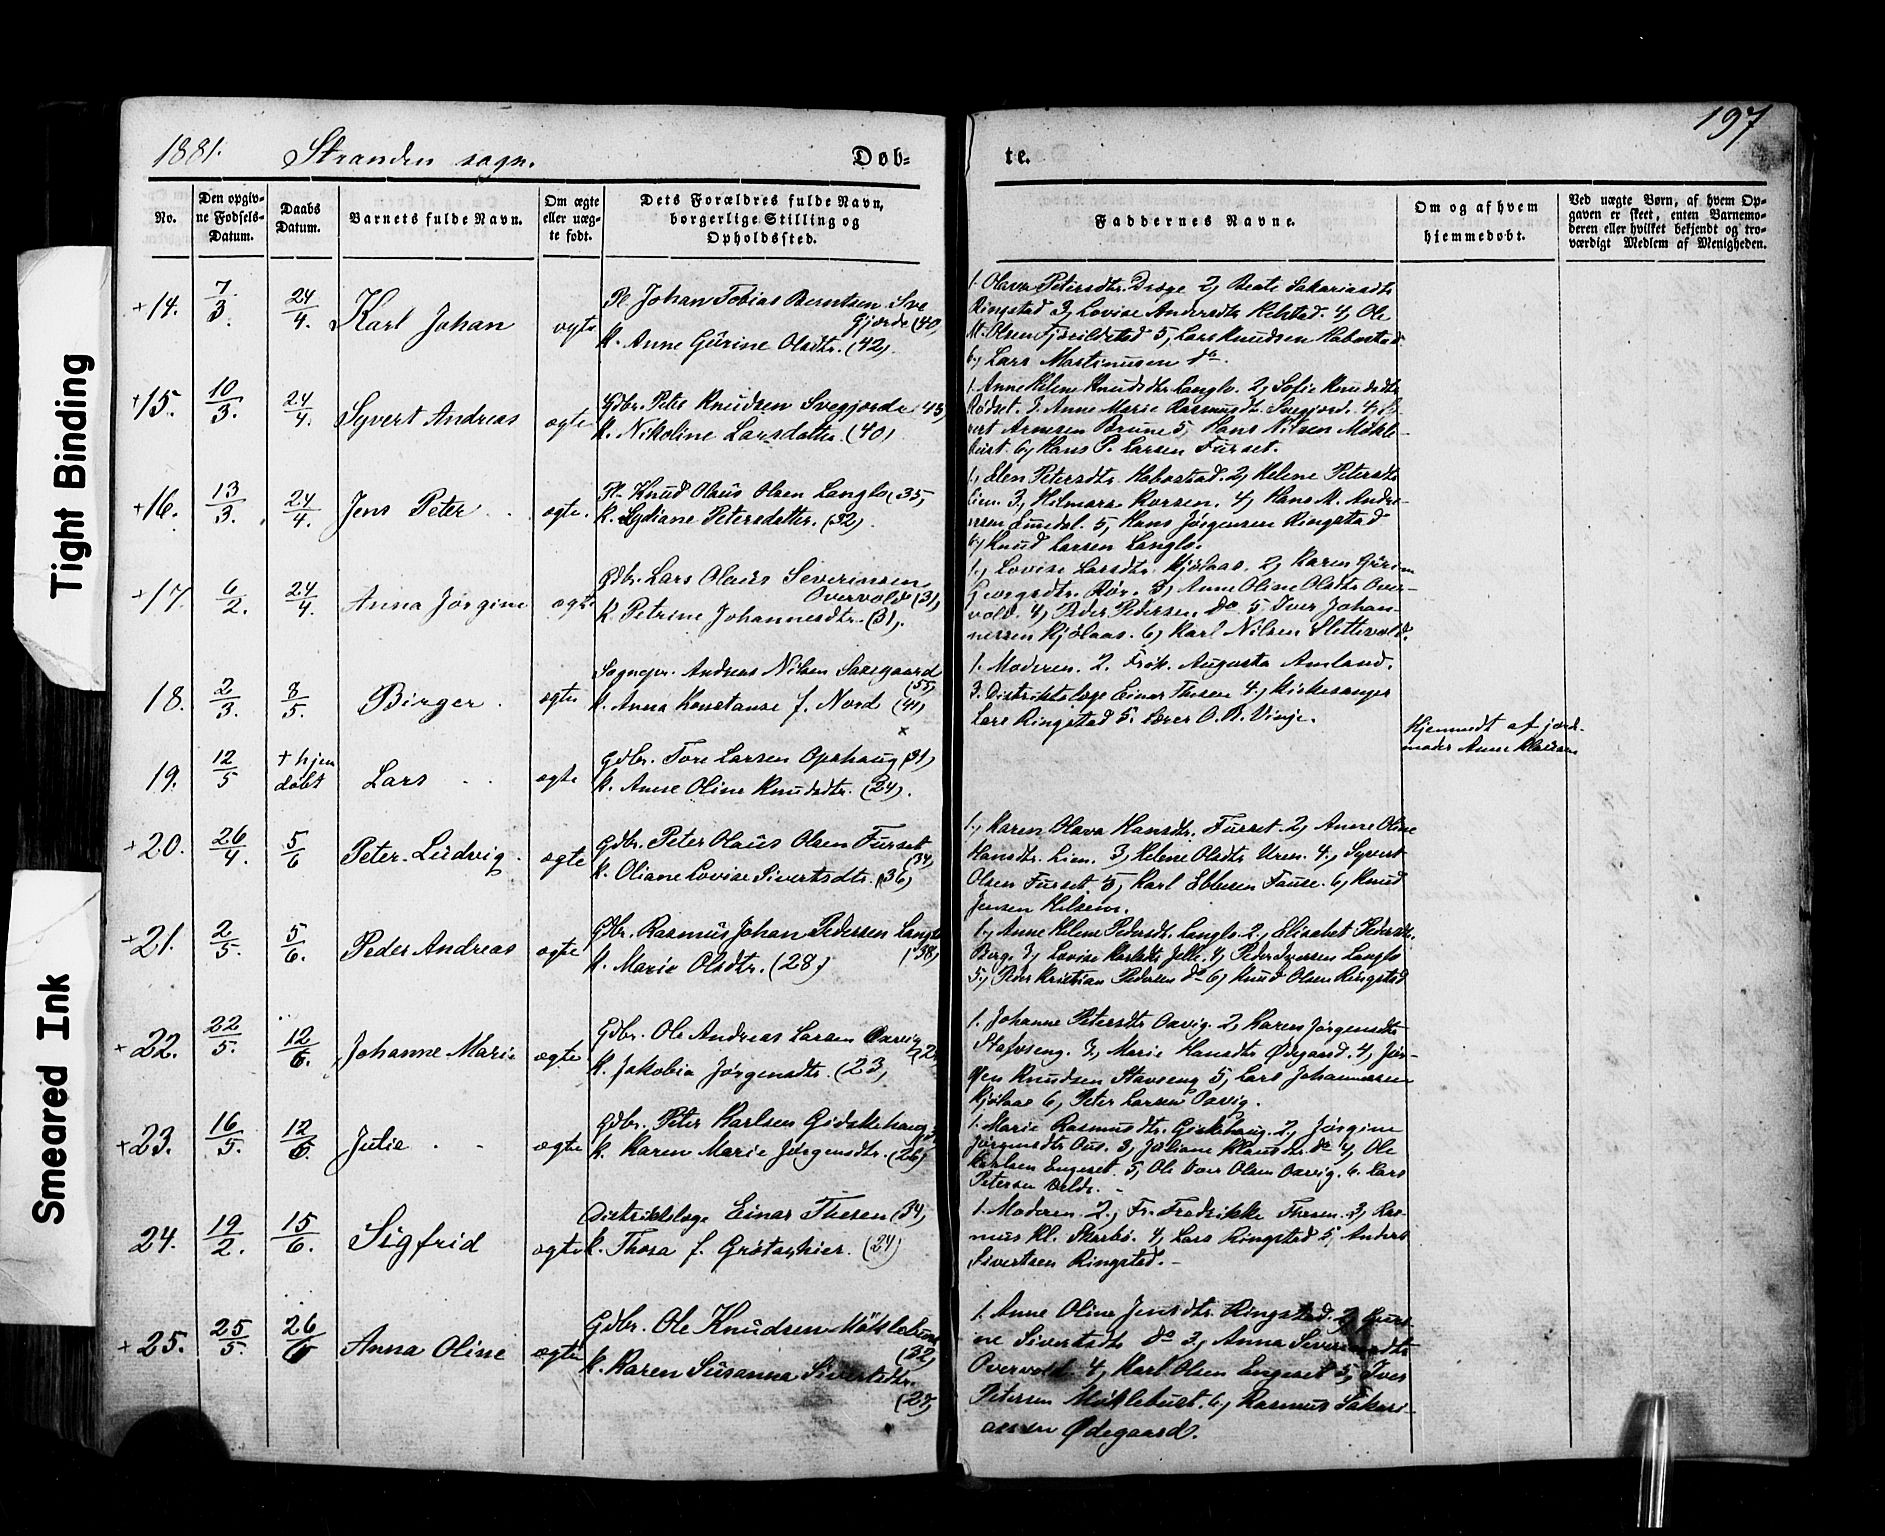 197
1881. Stranden sogn.
Døb-
te.
No.
Den opgiv-
ne Fødsels-
Datum.
Daabs
Datum.
Barnets fulde Navn.
Om ægte
eller uæg-
te født.
Dets Forældres fulde Navn,
borgerlige Stilling og
Opholdssted.
Faddernes Navne.
Om og af hvem
hjemmedøbt.
Ved uægte Børn, af hvem Op-
gaven er skeet, enten Barnemo-
deren eller hvilket bekjendt og tro-
værdigt Medlem af Menigheden.
+14. 7/3. 24/4. Karl Johan ægte
Pl. Johan Tobias Berntsen Sve
gjerde (40)
K. Anne Gurine Olsdtr. (42)
1. Olava Petersdtr. Drage 2, Beate Sakariasdtr
Ringstad 3, Lovise Andersdtr 4, Ole
M. Olsen 5, Lars Knudsen Habostad
6, Lars Martinusen do.
+15. 10/3. 24/4. Syvert Andreas ægte
Gdbr. Peter Knudsen Svegjerde (43)
K. Nikoline Larsdatter. (40)
1. Anne Helene Knudsdtr Langlo. 2, Sofie Knudsdtr
Rødset. 3. Anne Marie Rasmusdtr. Svegjerd. 4,
Arnesen Brune 5, Hans Nilsen Møkle-
bust. 6, Hans P. Larsen Furset.
+16. 13/3. 24/4. Jens Peter ægte.
Pl. Knud Olaus Olsen Langlo (35)
K. Lydiane Petersdatter. (32).
1, Elen Petersdtr. Habostad. 2, Helene Petersdtr
Lien. 3, Hilmara Korsen. 4, Hans M. Andre-
5, Hans Jørgensen Ringstad
6, Knud Larsen Langlo.
+17. 6/2. 24/4. Anna Jørgine ægte
Gdbr. Lars Olaus Severinsen
Overvold (31)
K. Petrine Johannesdtr. (31).
1, Lovise Larsdtr. Kjølaas. 2, Karen Gurine
3, Anne Oline Olsdtr Over-
vold. 4, Peder Pedersen do 5, Iver Johan-
nessen Kjølaas. 6, Karl Nilsen Slettevold.
18. 2/3. 8/5. Birger. ægte
Sognepr. Andreas Nilsen Saxegaard
(55)
K. Anna Konstanse f. Nord (41)
1. Moderen. 2. Frøk. Augusta Amland.
3. Distriktslæge Einar Thesen 4, Kirkesanger
Lars Ringstad 5. Lærer O. R. Vinje.
19. 12/5 + hjem
døbt Lars ægte
Gdbr. Tore Larsen Opshaug (31)
K. Anne Oline Knudsdtr. (24).
Hjemmedt af jord-
moder Anne
+20. 26/4. 5/6 Peter Ludvig. ægte
Gdbr. Peter Olaus Olsen Furset
(34)
K. Oliane Lovise Sivertsdtr. (36)
1, Karen Olava Hansdtr. Furset 2, Anne Oline
Hansdtr. Lien. 3, Helene Olsdtr Uren. 4, Syvert
Olsen Furset. 5, Karl Ebbesen Fause. 6, Knud
Jensen
+21. 2/5 5/6. Peder Andreas ægte
Gdbr. Rasmus Johan Pedersen Langlo
(38)
K. Marie Olsdtr. (28)
1, Anne Helene Pedersdt. Langlo. 2, Elisabet Pedersdtr.
Berg. 3, Lovise Karlsdt. Jelle. 4, Peder Iversen Langlo
5, Peder Kristian Pedersen do 6, Knud Olsen Ringstad
+22. 22/5. 12/6. Johanne Marie ægte
Gdbr. Ole Andreas Larsen Osvig
K. Jakobia Jørgensdtr. (23)
1. Johanne Petersdtr Osvig. 2, Karen Jørgensdtr
Stavseng. 3, Marie Hansdtr Ødegaard. 4, Jør-
gen Knudsen Stavseng 5, Lars Johannessen
Kjølaas 6, Peter Larsen Osvig.
+23. 16/5. 12/6 Julie ægte
Gdbr. Peter Karlsen Gidskehaug
K. Karen Marie Jørgensdtr. (26)
1. Marie Rasmusdtr. 2, Jørgine
Jørgensdtr Ous. 3, Juliane Klausdtr. do 4, Ole
Karlsen Engeset. 5, Ole Iver Olsen Osvig. 6. Lars
Petersen
24. 19/2. 15/6. Sigfrid ægte
Distriktslæge Einar Thesen (34)
K. Thora f. (24)
1. Moderen. 2, Fr. Fredrikke Thesen. 3, Ras-
mus Kl. Skarbø. 4, Lars Ringstad 5, Anders
Sivertsen Ringstad.
+25. 25/5. 26/6 Anna Oline ægte
Gdbr. Ole Knudsen Møklebust
(32)
K. Karen Susanna Sivertsdtr.
1. Anne Oline Jensdtr. Ringstad. 2,
Sivertsdtr do 3, Anna
Overvold. 4, Karl Olsen Engeset 5, Iver
Petersen Møklebust. 6, Rasmus Sakari-
assen Ødegaard.
Tight Binding
Smeared Ink